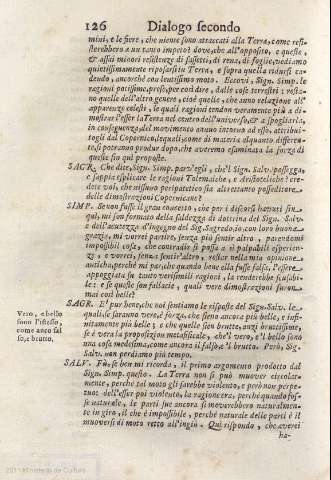 126 Dialogo secondo
mini, e le fiere, che niente sono attaccati alla Terra, come resi-
sterebbero a un tanto impeto? dove, che all'opposito, e queste,
& assai minori resistenze di sassetti, di rena, di foglie, vediamo
quietissimamente riposarsi in Terra, e sopra quella ridursi ca-
dendo, ancorchè con lentissimo moto. Eccovi, Sign. Simp. le
ragioni potissime, prese, per così dire, dalle cose terrestri: resta-
no quelle dell'altro genere, cioè quelle, che anno relazione all'
apparenze celesti, le quali ragioni tendon veramente più a di-
mostrar l'esser la Terra nel centro dell'universo, & a spogliarla,
in conseguenza, del movimento annuo intorno ad esso, attribui-
togli dal Copernico, le quali, come di materia alquanto differen-
te, si potranno produr dopo, che averemo esaminata la forza di
queste sin quì proposte.
SAGR. Che dite, Sign. Simp. parv'egli, che'l Sign. Salv. possegga,
e sappia esplicare le ragioni Tolemaiche, e Aristoteliche? cre-
dete voi, che nissuno peripatetico sia altrettanto posseditore
delle dimostrazioni Copernicane?
SIMP. Se non fusse il gran concetto, che per i discorsi havuti sin
quì, mi son formato della saldezza di dottrina del Sign. Salv.
e dell'acutezza d'ingegno del Sig. Sagredo, io, con loro buona
grazia, mi vorrei partire, senza più sentir altro, parendomi
impossibil cosa, che contradir si possa a sì palpabili esperien-
ze, e vorrei, senza sentir'altro, restar nella mia opinione
antica, perchè mi par, che quando bene ella fusse falsa, l'essere
appoggiata su tanto verisimili ragioni, la renderebbe scusabi-
le: e se queste son fallacie, quali vere dimostrazioni furon
mai così belle?
SAGR. E' pur bene, che noi sentiamo le risposte del Sign. Salv. le-
quali, se saranno vere, è forza, che sieno ancora più belle, e infi-
nitamente più belle; e che quelle sien brutte, anzi bruttissime,
se è vera la proposizion metafisicale, che'l vero, e'l bello sono
una cosa medesima, come ancora il falso, e'l brutto. Però, Sig.
Salv. non perdiamo più tempo.
Vero, e bello
sono l'istesso,
come anco fal
so, e brutto.
SALV. Fù, se ben mi ricorda, il primo argomento prodotto dal
Sign. Simp. questo. La Terra non si può muover circolar-
mente, perchè tal moto gli sarebbe violento, e però non perpe-
tuo: dell'esser poi violento, la ragion era, perchè quando fos-
se naturale, le parti sue ancora si moverebbero naturalmen-
te in giro, il che è impossibile, perchè naturale delle parti è il
muoversi di moto retto all'ingiù. Quì rispondo, che averei
ha-
2011 Ministerio de Cultura